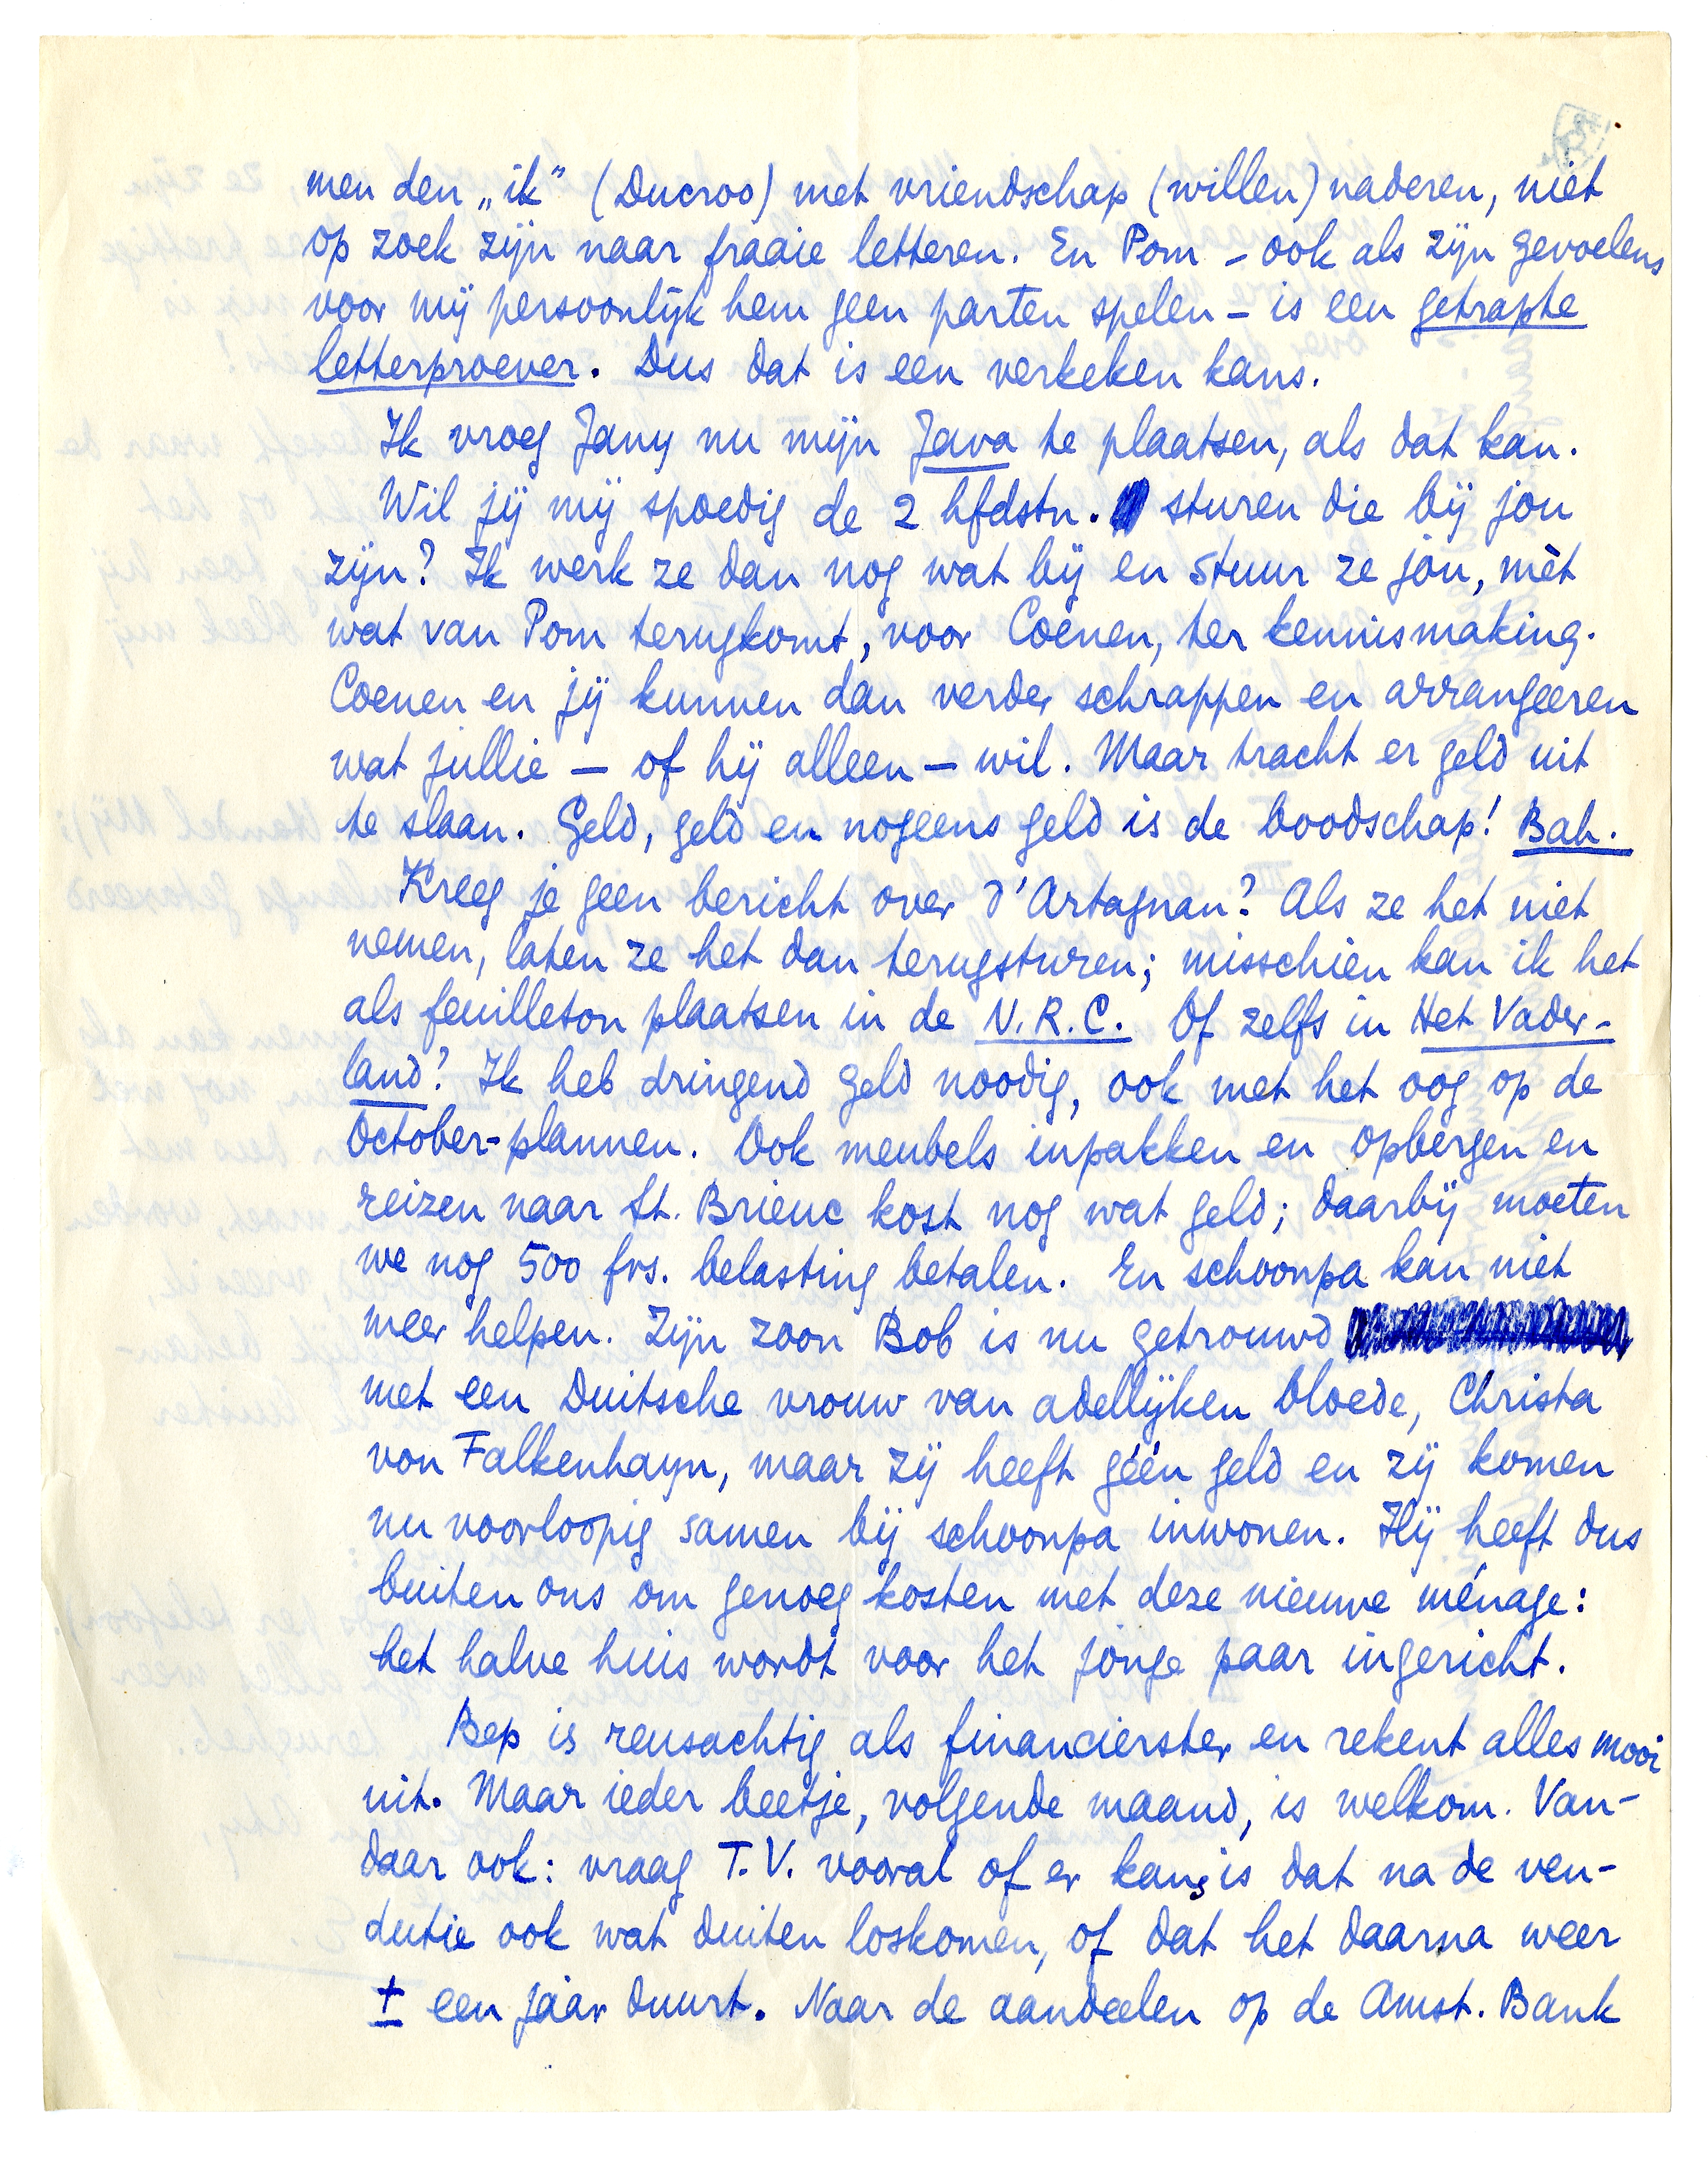 men den „ik” (Ducroo) met vriendschap (willen) naderen, niet
op zoek zijn naar fraaie letteren. En Pom – ook als zijn gevoelens
voor mij persoonlijk hem geen parten spelen – is een getrapte
letterproever. Dus dat is een verkeken kans.
Ik vroeg Jany nu mijn Java te plaatsen, als dat kan.
Wil jij mij spoedig de 2 hfdstn. sturen die bij jou
zijn? Ik werk ze dan nog wat bij en stuur ze jou, mèt
wat van Pom terugkomt, voor Coenen, ter kennismaking.
Coenen en jij kunnen dan verder schrappen en arrangeeren
wat jullie – of hij alleen – wil. Maar tracht er geld uit
te slaan. Geld, geld en nogeens geld is de boodschap! Bah.
Kreeg je geen bericht over d'Artagnan? Als ze het niet
nemen, laten ze het dan terugsturen; misschien kan ik het
als feuilleton plaatsen in de N.R.C. Of zelfs in Het Vader-
land? Ik heb dringend geld noodig, ook met het oog op de
October-plannen. Ook meubels inpakken en opbergen en
reizen naar St. Brieuc kost nog wat geld; daarbij moeten
we nog 500 frs. belasting betalen. En schoonpa kan niet
meer helpen. Zijn zoon Bob is nu getrouwd
met een Duitsche vrouw van adellijken bloede, Christa
von Falkenhayn, maar zij heeft géén geld en zij komen
nu voorloopig samen bij schoonpa inwonen. Hij heeft dus
buiten ons om genoeg kosten met deze nieuwe ménage:
het halve huis wordt voor het jonge paar ingericht.
Bep is reusachtig als financierster en rekent alles mooi
uit. Maar ieder beetje, volgende maand, is welkom. Van-
daar ook: vraag T.V. vooral of er kans is dat na de ven-
dutie ook wat duiten loskomen, of dat het daarna weer
± een jaar duurt. Naar de aandeelen op de Amst. Bank